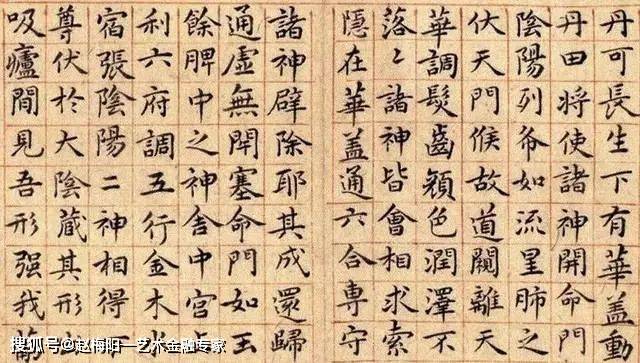 丹可長生下有華蓋動
丹田將使諸神開命門
陰陽列布如流星肺之
伏天門候故道闕離天
華調髮齒顏色潤澤不
落〻諸神皆會相求索
隱在華盖通六合專守
諸神辟除耶其成還歸
通虛無閇塞命門如玉
餘脾中之神舍中宮
利六府調五行金木水
宿張陰陽二神相得
尊伏於大陰藏其形
吸廬間見吾形强我
搜狐号@赵梅阳—艺术金融专家